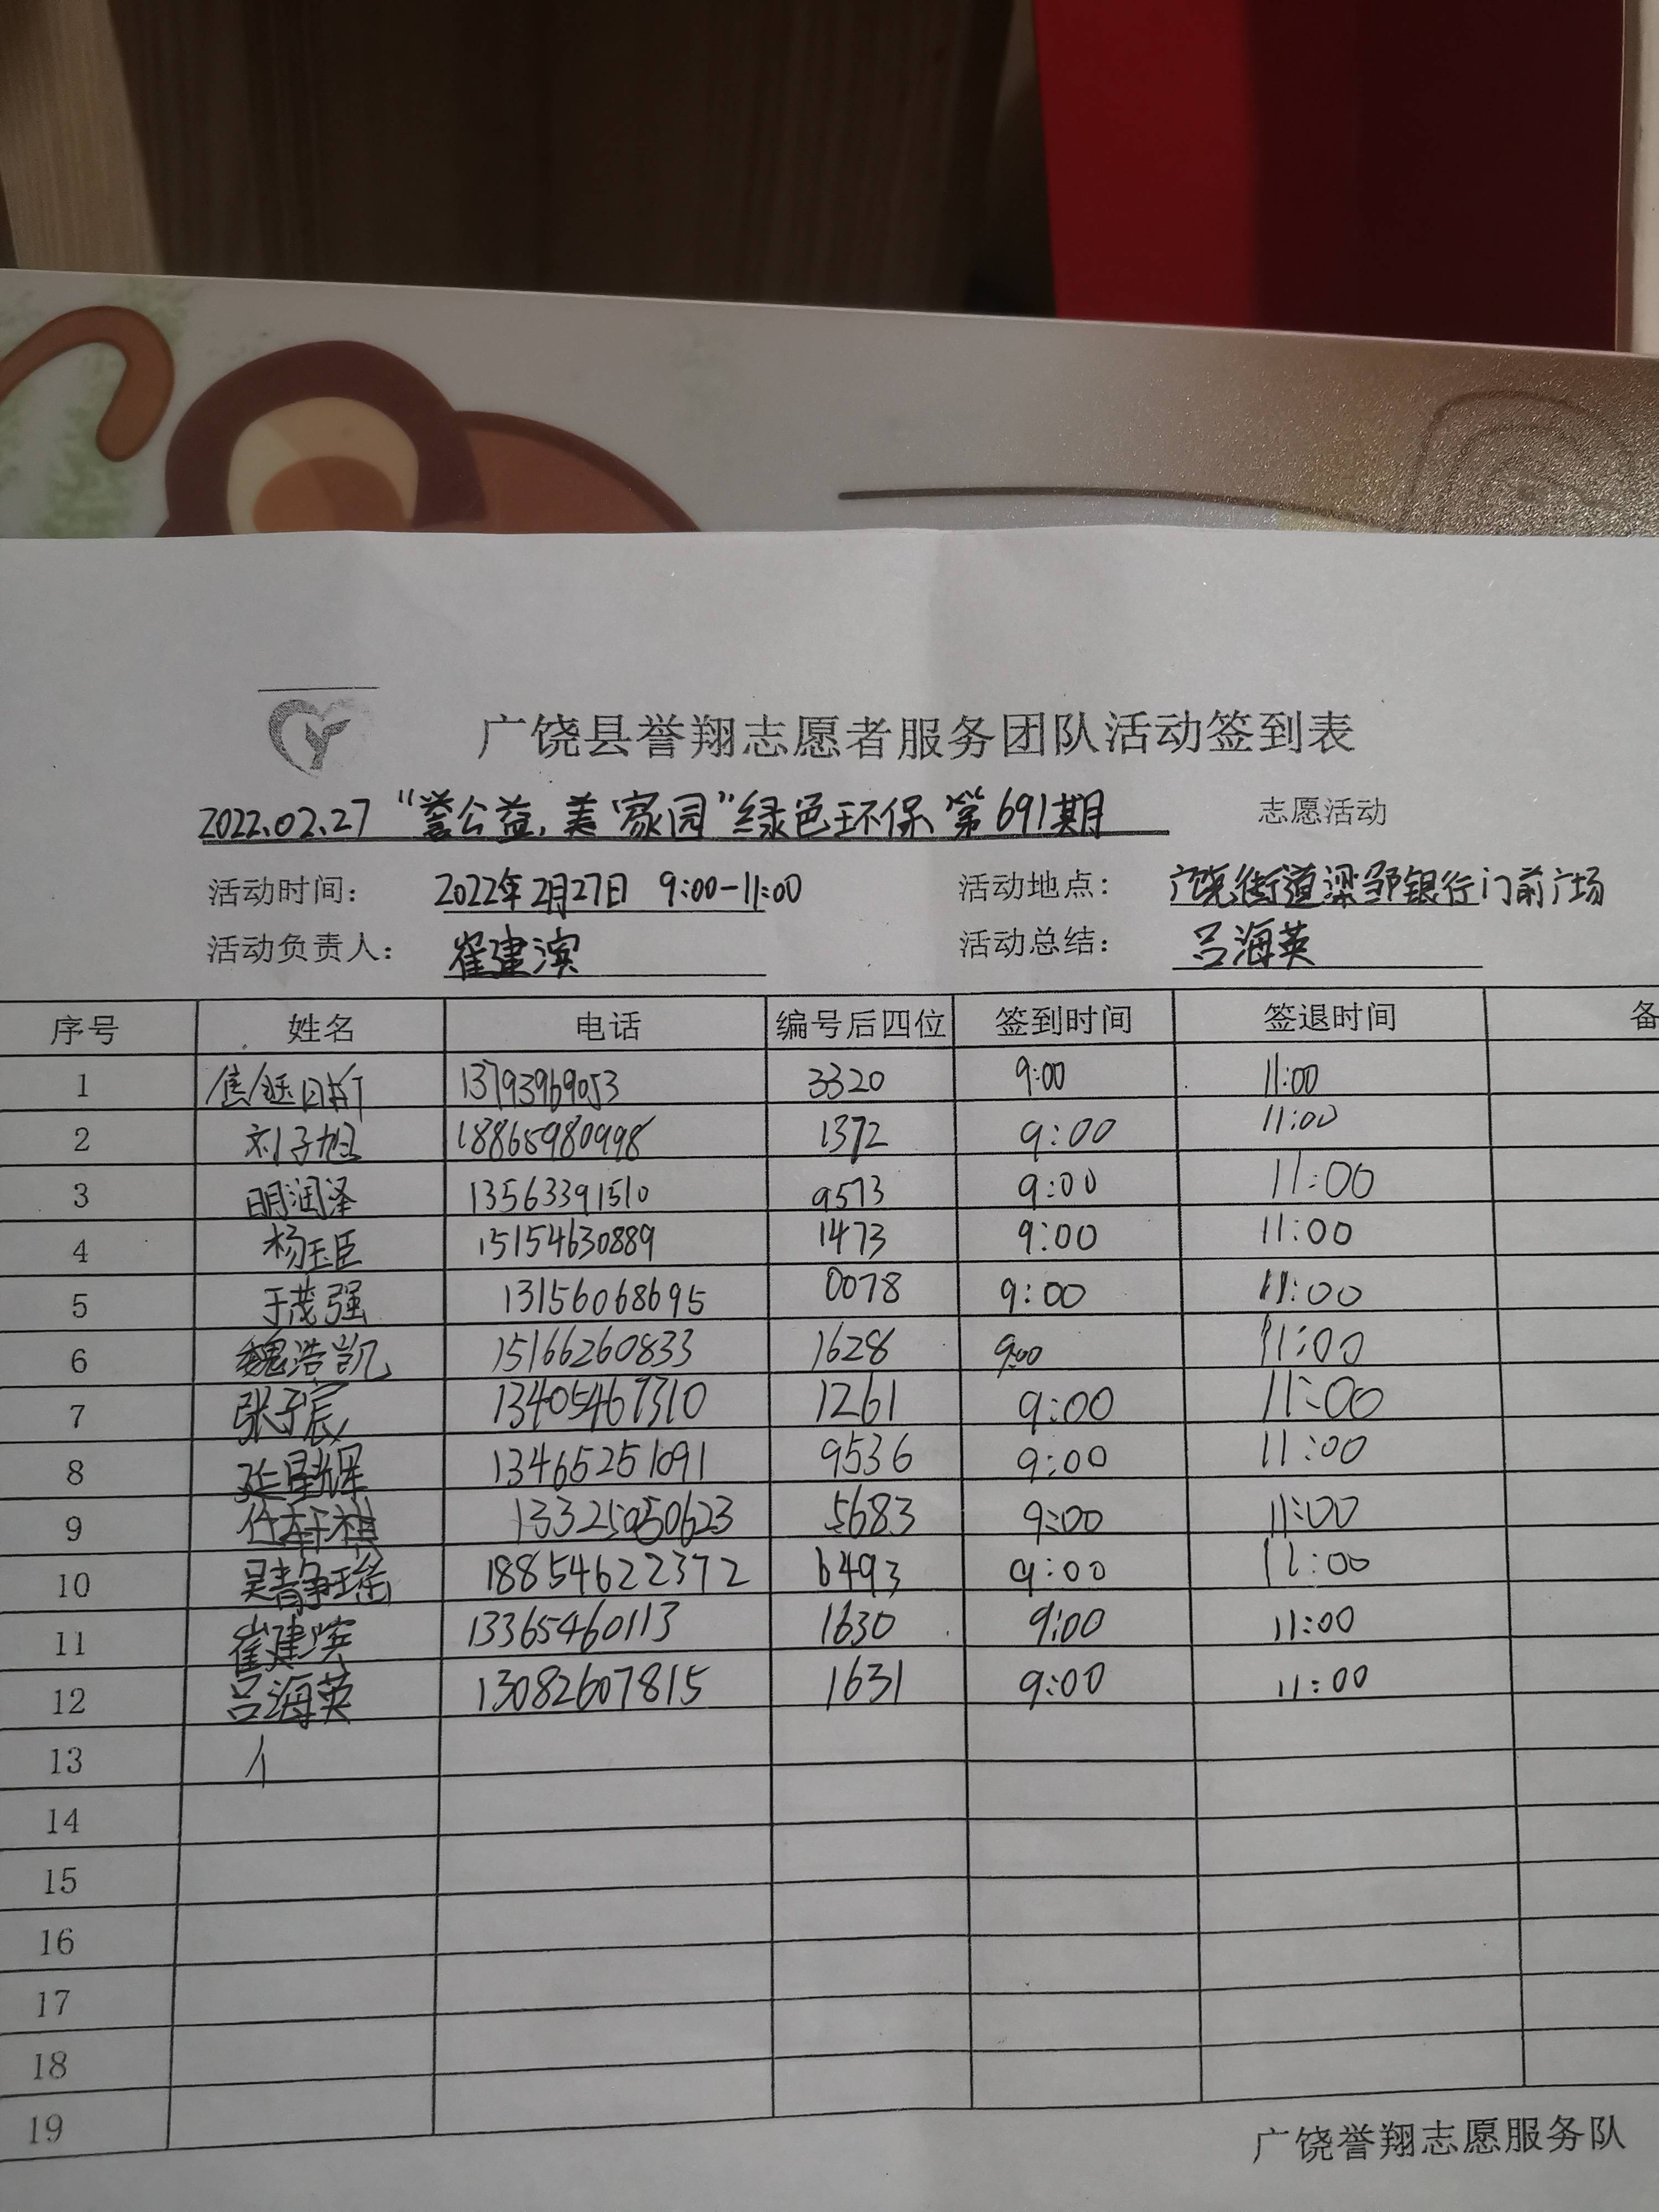 广饶县誉翔志愿者服务团队活动签到表
2022.02.27“誉公益,美家园”绿色环保第691期 志愿活动
活动时间: 2022年2月27日 9:00-11:00 活动地点: 广饶街道梁邹银行门前广场
活动负责人: 崔建滨 活动总结: 吕海英
序号 姓名 电话 编号后四位 签到时间 签退时间 备
1 焦钰昕 13793969053 3320 9:00 11:00
2 刘子旭 18865980998 1372 9:00 11:00
3 明润泽 13563391510 9573 9:00 11:00
4 杨玉臣 15154630889 1473 9:00 11:00
5 于茂强 13156068695 0078 9:00 11:00
6 魏浩凯 15166260833 1628 9:00 11:00
7 张子宸 13405467310 1261 9:00 11:00
8 延星辉 13465251091 9536 9:00 11:00
9 任轩祺 5683 9:00 11:00
10 吴静瑶 18854622372 6493 9:00 11:00
11 崔建滨 13365460113 1630 9:00 11:00
12 吕海英 13082607815 1631 9:00 11:00
13
14
15
16
17
18
19
广饶誉翔志愿服务队